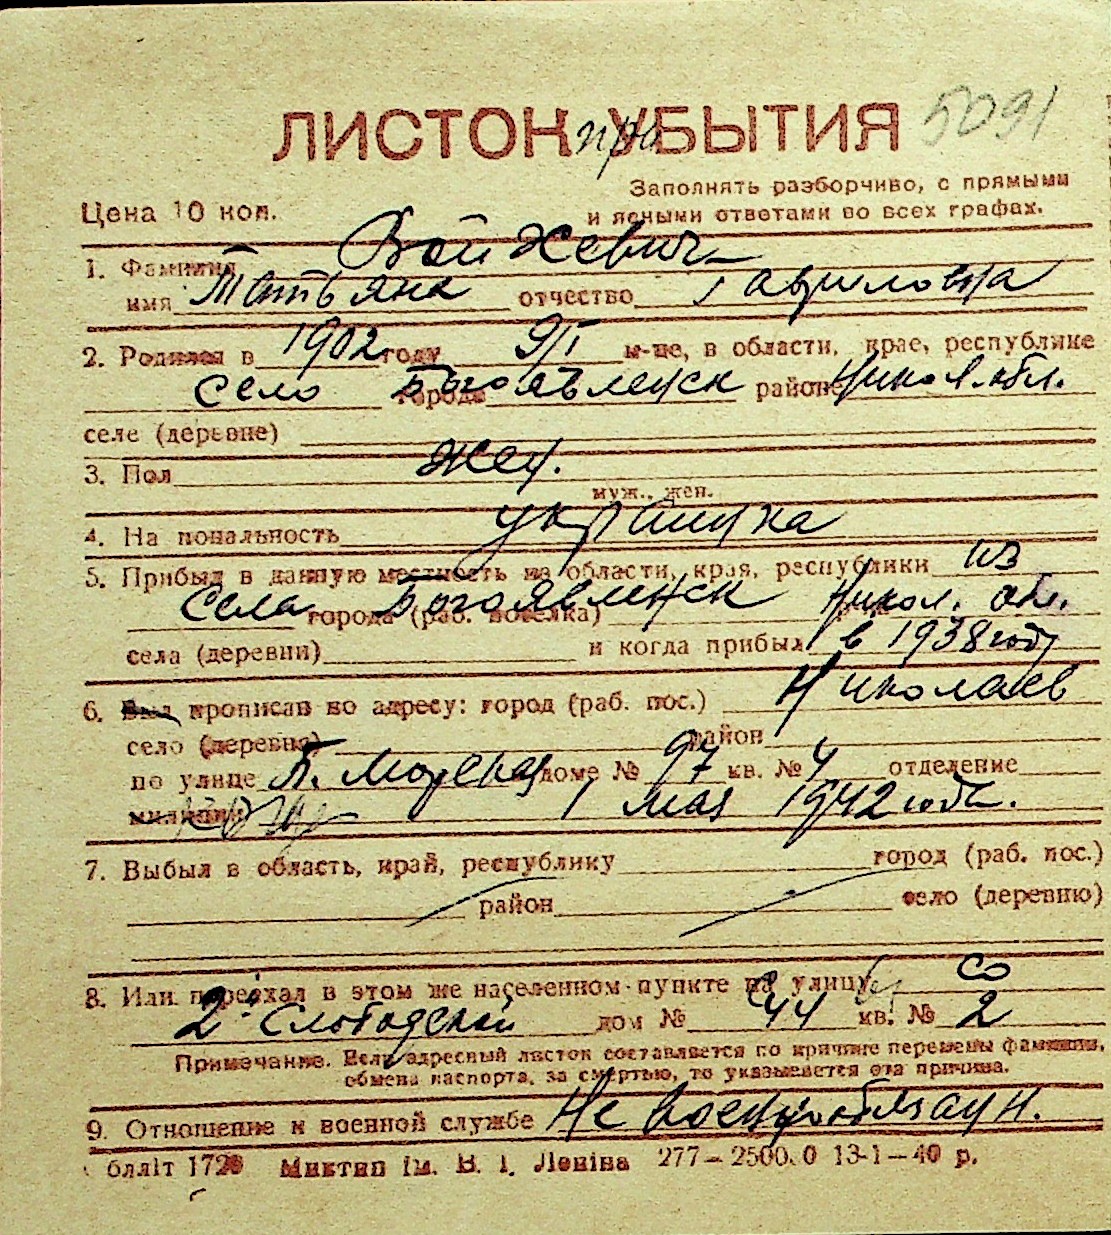 ЛИСТОК УБЫТИЯ при 5091
Заполнять разборчиво, с прямыми
Цена 10 коп. и ясными ответами во всех графах.
1. Фамилия Войхевич
имя Татьяна отчество Гавриловна
2. Родился в 1902 году 9/I м-це, в области, крае, республике
село города Богоявленск районе Никол. обл.
селе (деревне)
3. Пол жен.
муж., жен.
4. На пональность украинка
5. Прибыл в данную местность из области, края, республики из
села города (раб. поселка) Богоявленск Никол. обл.
села (деревни) и когда прибыл в 1938 году
6. Был прописан по адресу: город (раб. пос.) Николаев
село (деревня) район
по улице Б. Морская доме № 97 кв. № 4 отделение
милиции 1 мая 1942 года.
7. Выбыл в область, край, республику город (раб. пос.)
район село (деревню)
8. Или переехал в этом же населенном пункте на улицу со
2й Слободской дом № 44 кв. № 2
Примечание. Если адресный листок составляется по причине перемены фамилии,
обмена паспорта, за смертью, то указывается эта причина.
9. Отношение к военной службе Не военнообязан.
блліт 1720 Миктип ім. В. І. Леніна 277—2500.0 13-1—40 р.